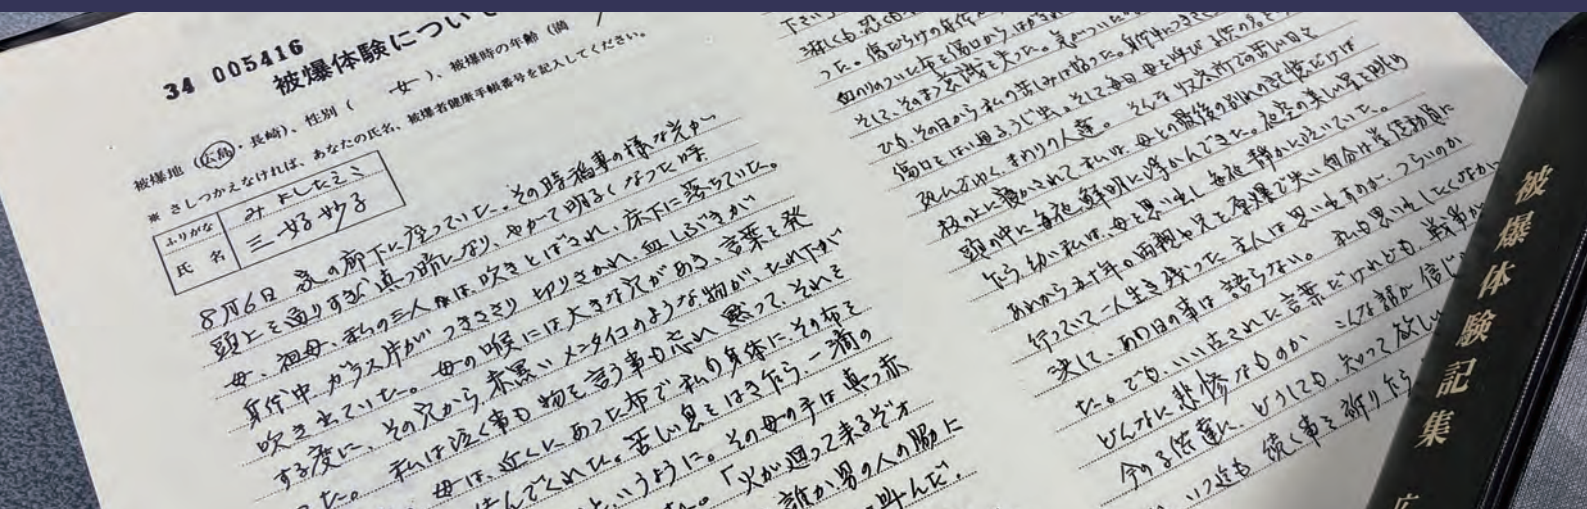 34 005416
被爆体験につい
被爆地（広島・長崎）、性別（ 女 ）、被爆時の年齢（満
※ さしつかえなければ、あなたの氏名、被爆者健康手帳番号を記入してください。
ふりがな みよしたえこ
氏名 三好妙子
8月6日 家の廊下に座っていた。その時稲妻の様な光が
頭上を通りすぎ真っ暗になり、やがて明るくなった時
母、祖母、私の三人は、吹きとばされ、床下に落ちていた。
身体中ガラス片がつきささり切りさかれ、血しぶきが
吹き出ていた。母の喉には大きな穴があき、言葉を発
する度に、その穴から赤黒いメンタイコのような物が、たれ下が
った。私は泣く事も物を言う事も忘れ黙って、それを
母は、近くにあった布で私の身体に、その布を
んでくれた。苦しい息をはき乍ら、一滴の
というように。その母の手は真っ赤
た。「火が廻って来るぞォ
誰か男の人の脇に
叫んだ。
下さい
った。傷だらけの身体
血のりのついた布を傷口からはがされ
そして、そのまま意識を失った。気がついた
ひも、その日から私の苦しみは始った。身体中につきささ
傷口をはい廻るうじ虫。そして毎日母を呼び子供の名を
死んでゆく、まわりの人達。そんな収容所での苦しい日を
板の上に寝かされて私は、母との最後の別れの記憶だけは
頭の中に毎夜鮮明に浮かんできた。夜空の美しい星を眺め
乍ら、幼い私は、母を思い出し毎夜静かに泣いていた。
あれから五十年。両親と兄を原爆で失い自分は学徒動員に
行っていて一人生き残った主人は思い出すのが、つらいのか
決して、あの日の事は語らない。私も思い出したくなかっ
た。でも、いい古された言葉だけれども、戦争が
どんなに悲惨なものか こんな話が信じ
今の子供達に、どうしても、知って欲しい
いつ迄も続く事を祈り乍ら
被爆体験記集 広